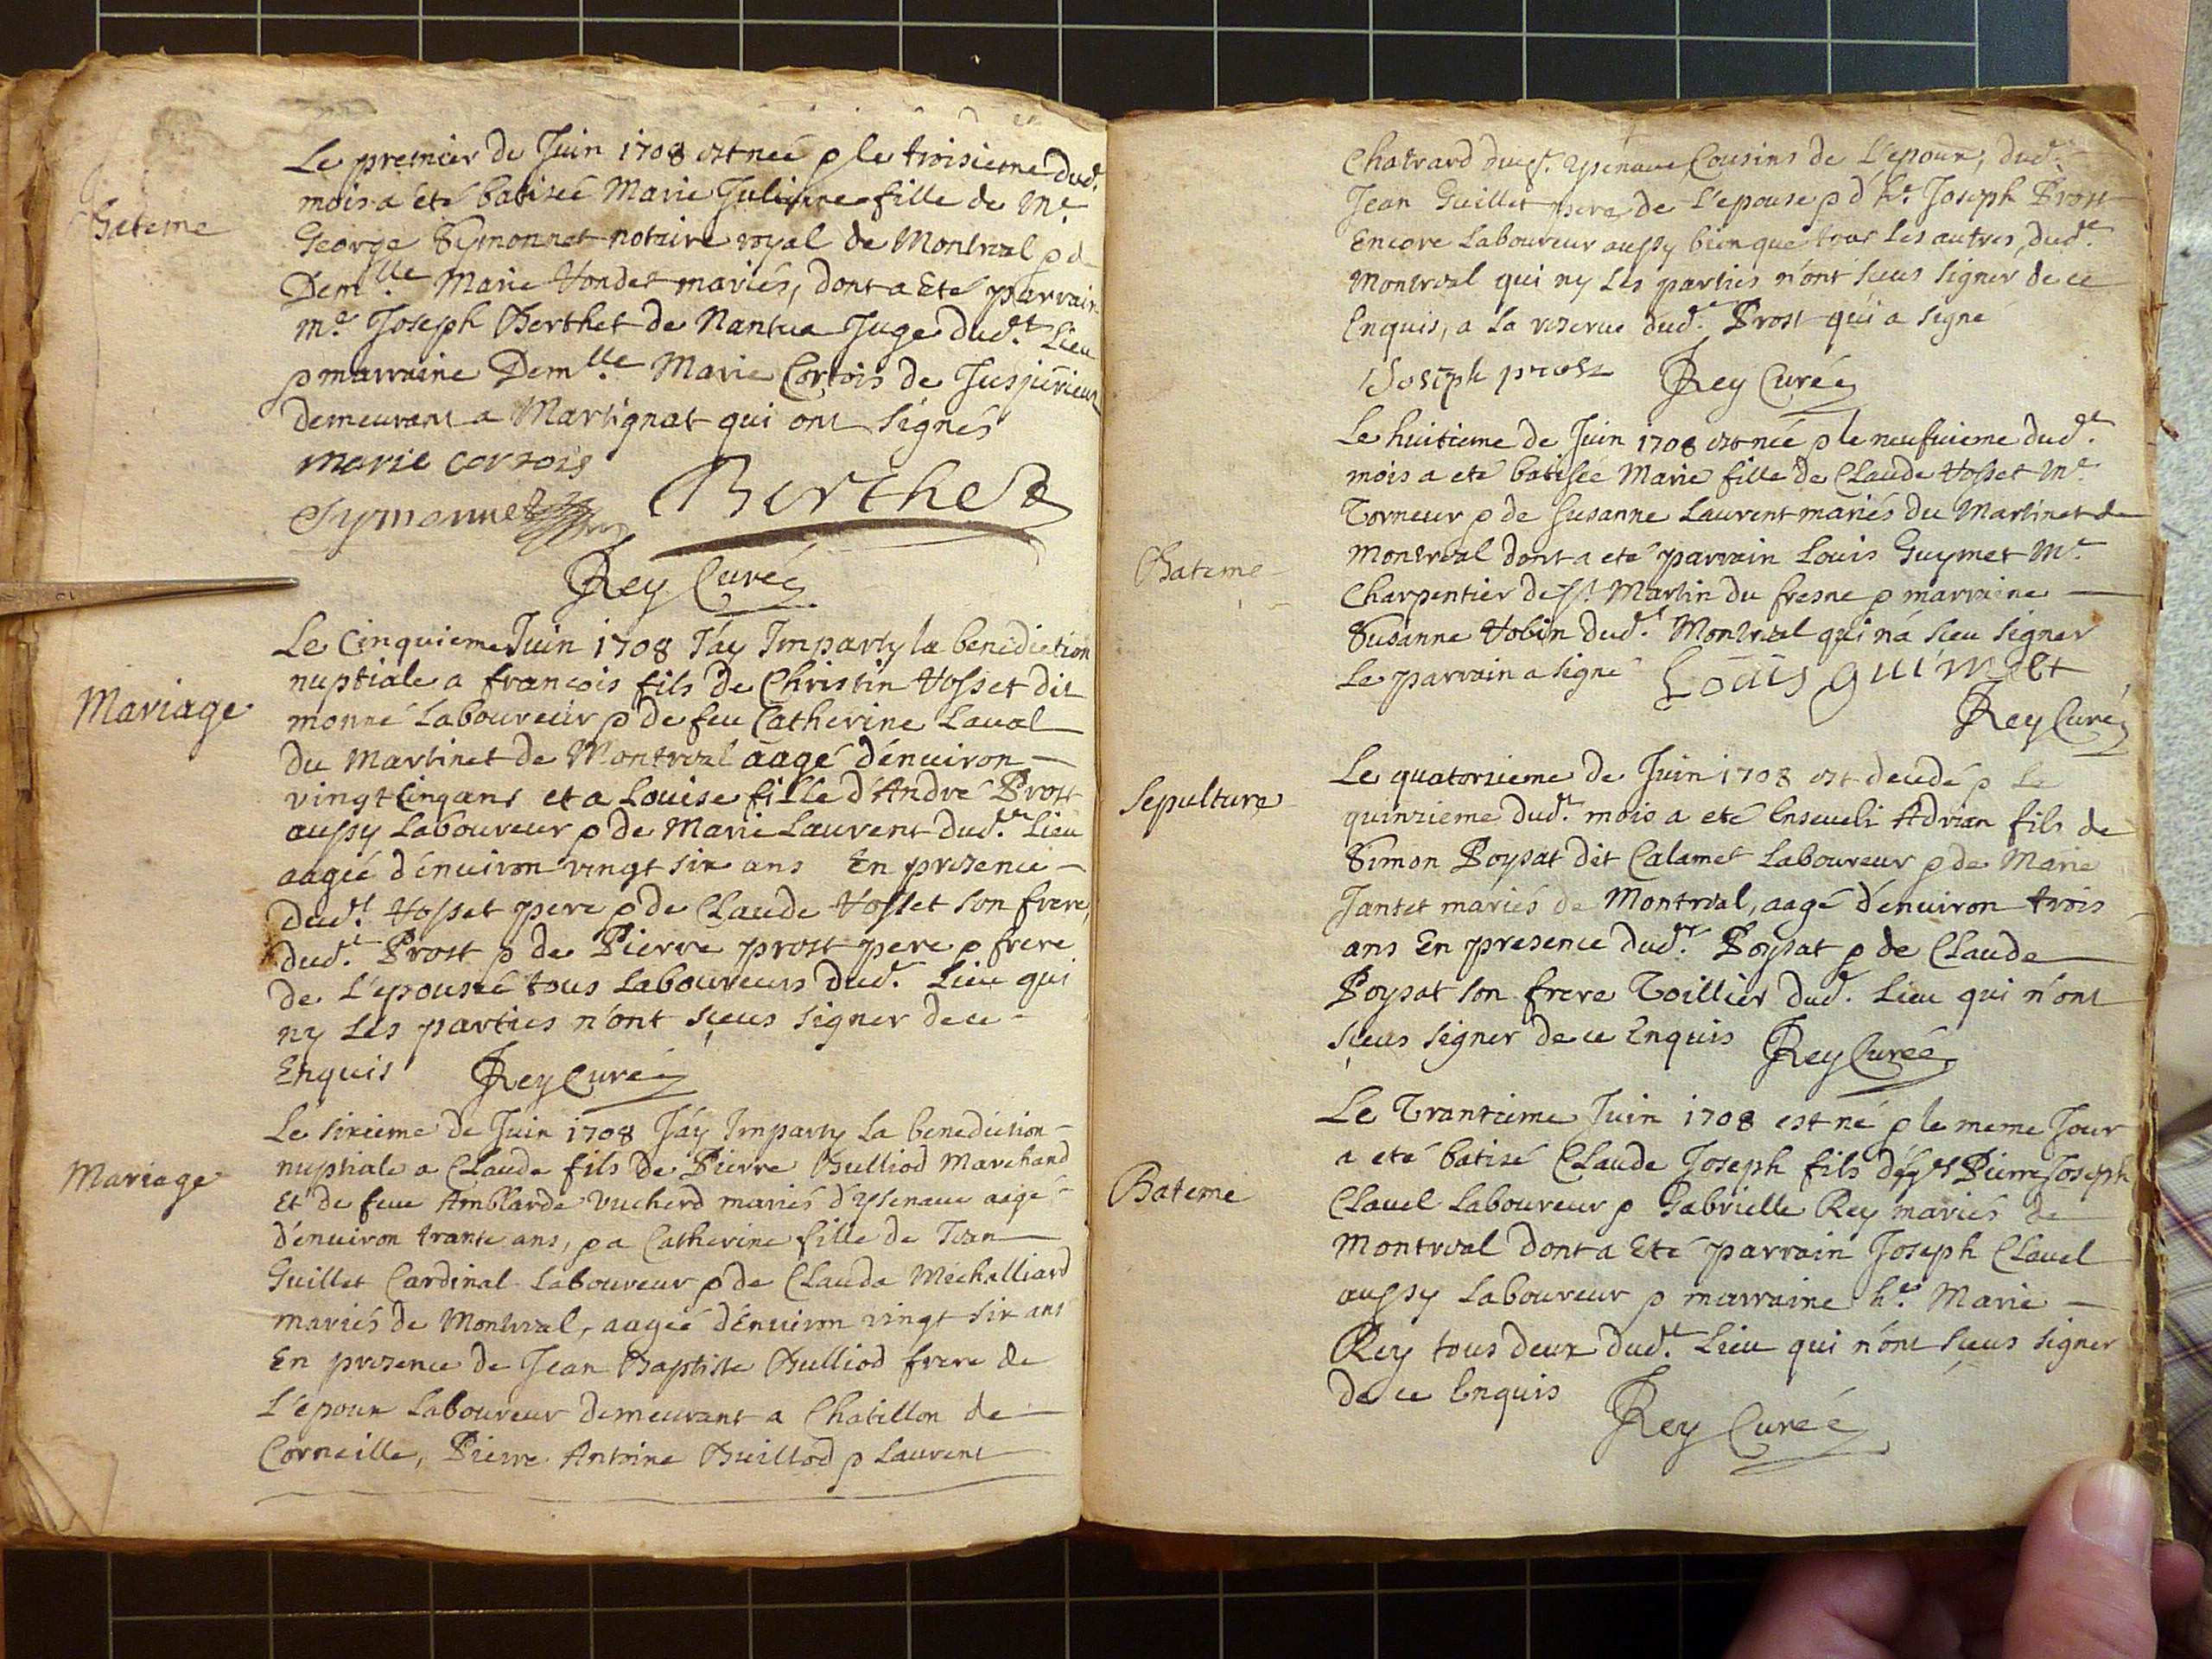 Bateme
Le premier de Juin 1708 est née p le troisieme dud.t
mois a été batisée Marie Julienne fille de M.e
George Symonnet notaire royal de Montreal p d
Dem.lle Marie Vondet mariés, dont a Eté parrain
m.e Joseph Berthet de Nantua Juge dud.t Lieu
p marraine Dem.lle Marie Cortois de Jusjurieux
demeurant a Martignat qui ont signés
marie cortois
Symonnet Berthet
Rey Curé
Mariage
Le Cinquieme Juin 1708 J'ay Imparty la benediction
nuptiale a francois fils de Christin Vosset dit
monne Laboureur p de feu Catherine Laval
du Martinet de Montreal aagé d'enuiron
vingt Cinq ans et a Louise fille d'André Prost
aussy Laboureur p de Marie Laurent dud.t Lieu
aagée d'enuiron vingt six ans En presence
dud.t Vosset pere p de Claude Vosset son frere,
dud.t Prost p de Pierre prost pere p frere
de L'epousée tous Laboureurs dud.t Lieu qui
ny Les parties n'ont sçeus signer de ce
Enquis Rey Curé
Mariage
Le sixieme de Juin 1708 J'ay Imparty La benediction
nuptiale a Claude fils de Pierre Bulliod Marchand
Et de feue Amblarde Vucherd mariés d'ysenaue aagé
d'enuiron trante ans, p a Catherine fille de Jean
Guillet Cardinal Laboureur p de Claude Mechalliard
mariés de Montreal, aagée d'Enuiron vingt six ans
En presence de Jean Baptiste Bulliod frere de
L'epoux Laboureur demeurant a Chatillon de
Corneille, Pierre Antoine Builliod p Laurent
Chatrard dud.t ysenaue Cousins de L'epoux, dud.t
Jean Guillet pere de L'epouse p d'h.e Joseph Prost
Encore Laboureur aussy bien que tous Les autres, dud.t
Montreal qui ny Les parties n'ont sceus signer de ce
Enquis, a La reserue dud.t Prost qui a signé
Joseph prost Rey Curé
Bateme
Le huitieme de Juin 1708 est née p le neufuieme dud.t
mois a eté batisée Marie fille de Claude Vosset M.e
Torneur p de Susanne Laurent mariés du Martinet de
Montreal dont a eté parrain Louis Guymet M.e
Charpentier de S.t Martin du fresne p marraine
Susanne Vobin dud.t Montreal qui n'a sceu signer
Le parrain a signé Louis guimet
Rey Curé
Sepulture
Le quatorzieme de Juin 1708 est decedé p Le
quinzieme dud.t mois a eté Enseueli Adrian fils de
Simon Poysat dit Calamet Laboureur p de Marie
Jantet mariés de Montreal, aagé d'enuiron trois
ans En presence dud.t Poysat p de Claude
Poysat son frere Toillier dud.t Lieu qui n'ont
sçeus signer de ce Enquis Rey Curé
Bateme
Le Trantieme Juin 1708 est né p le meme Jour
a eté batisé Claude Joseph fils d'h Pierre Joseph
Clauel Laboureur p Gabrielle Rey mariés de
Montreal dont a Eté parrain Joseph Clauel
aussy Laboureur p marraine h.e Marie
Rey tous deux dud.t Lieu qui n'ont sçeus signer
de ce Enquis Rey Curé